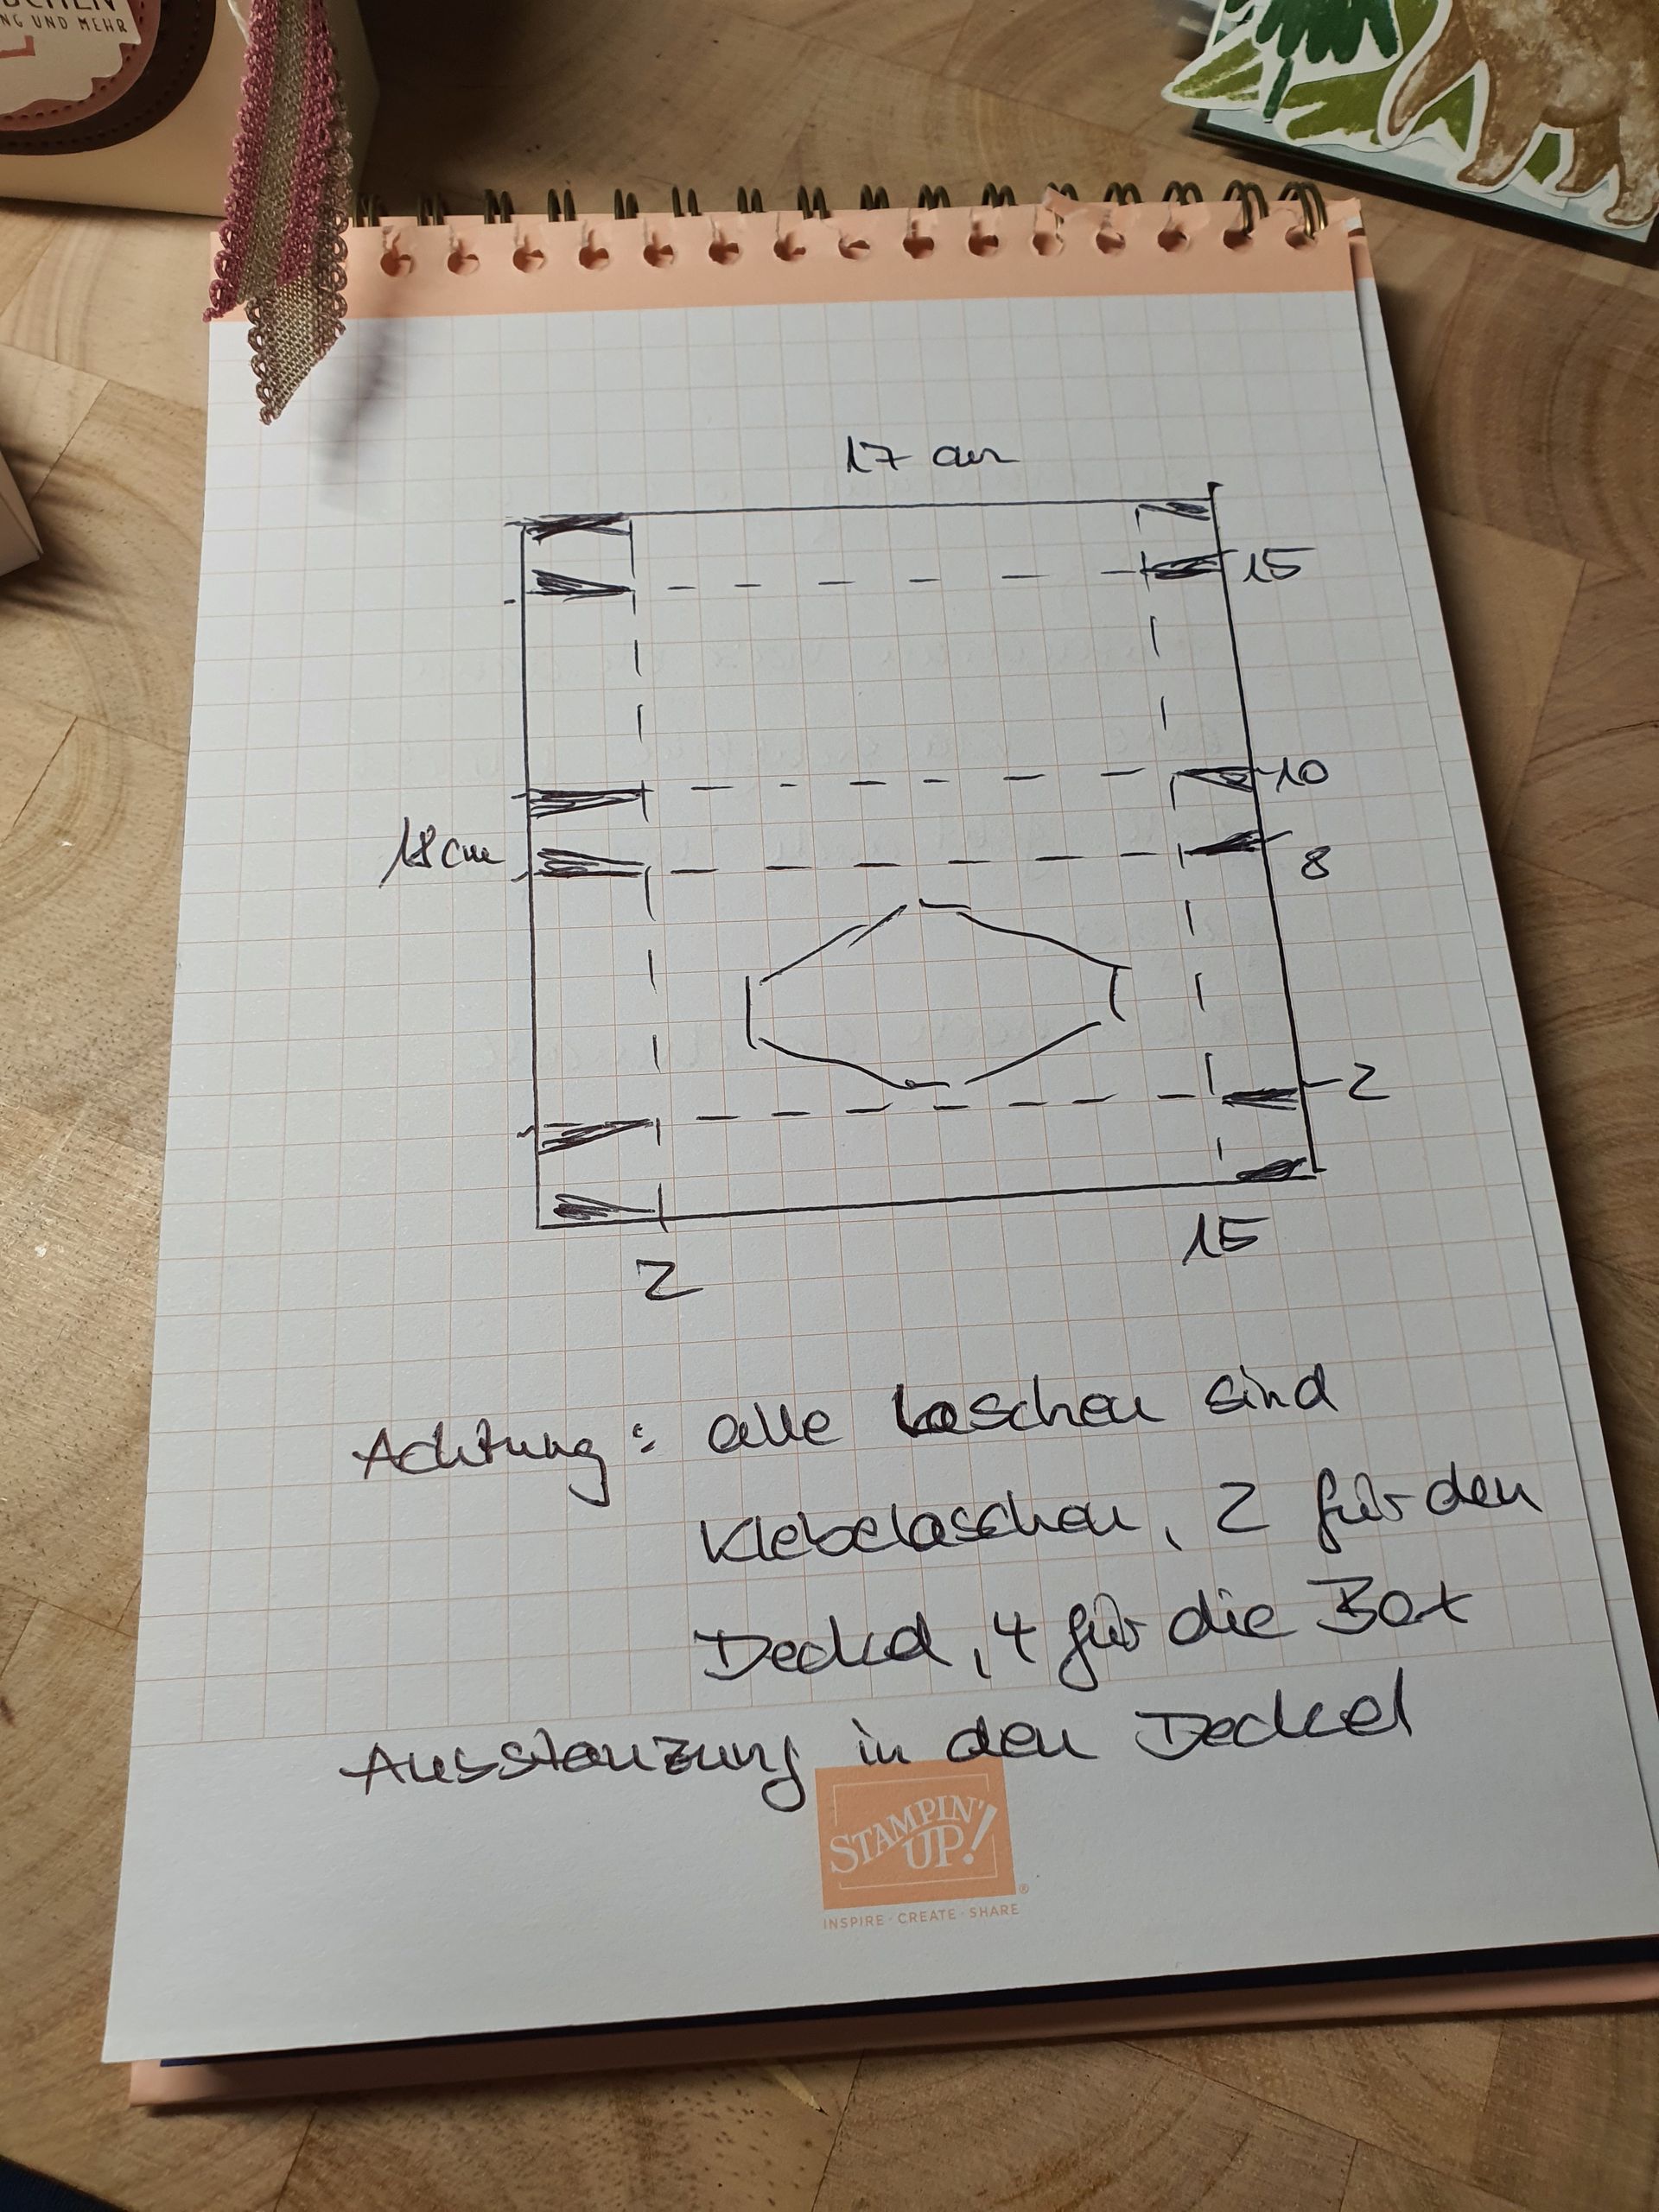 NG UND MEHR
17 cm
15
10
18 cm
8
2
15
2
Achtung: alle Laschen sind
Klebelaschen, 2 für den
Deckel, 4 für die Box
Ausstanzung in den Deckel
STAMPIN'
UP!®
INSPIRE · CREATE · SHARE